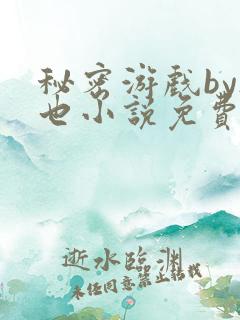 秘密游戏by
也小说免费
逝水临渊
未经同意禁止转载